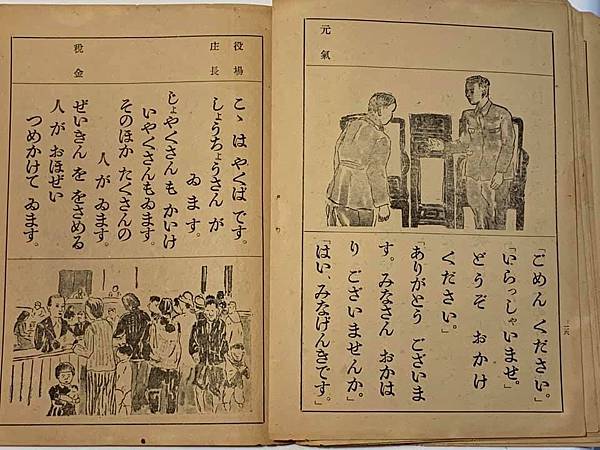 元氣
「ごめん ください。」
「いらっしゃいませ。
どうぞ おかけ
ください。」
「ありがとう ございま
す。みなさん おかは
り ございませんか。」
「はい、みなげんきです。」
役場
庄長
税金
こゝは やくば です。
しょうちょうさん が
ゐ ま す。
しょやくさん も かいけ
いやくさんもゐます。
そのほか たくさんの
人 が ゐます。
ぜいきん を をさめる
人 が おほぜい
つめかけて ゐます。